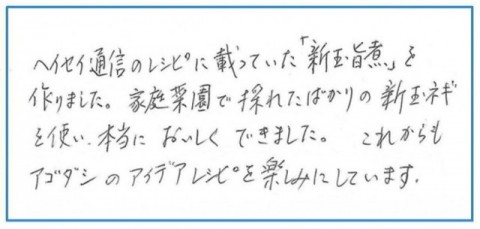 ヘイセイ通信のレシピに載っていた「新玉旨煮」を
作りました。家庭菜園で採れたばかりの新玉ネギ
を使い、本当においしくできました。 これからも
アゴダシのアイデアレシピを楽しみにしています。